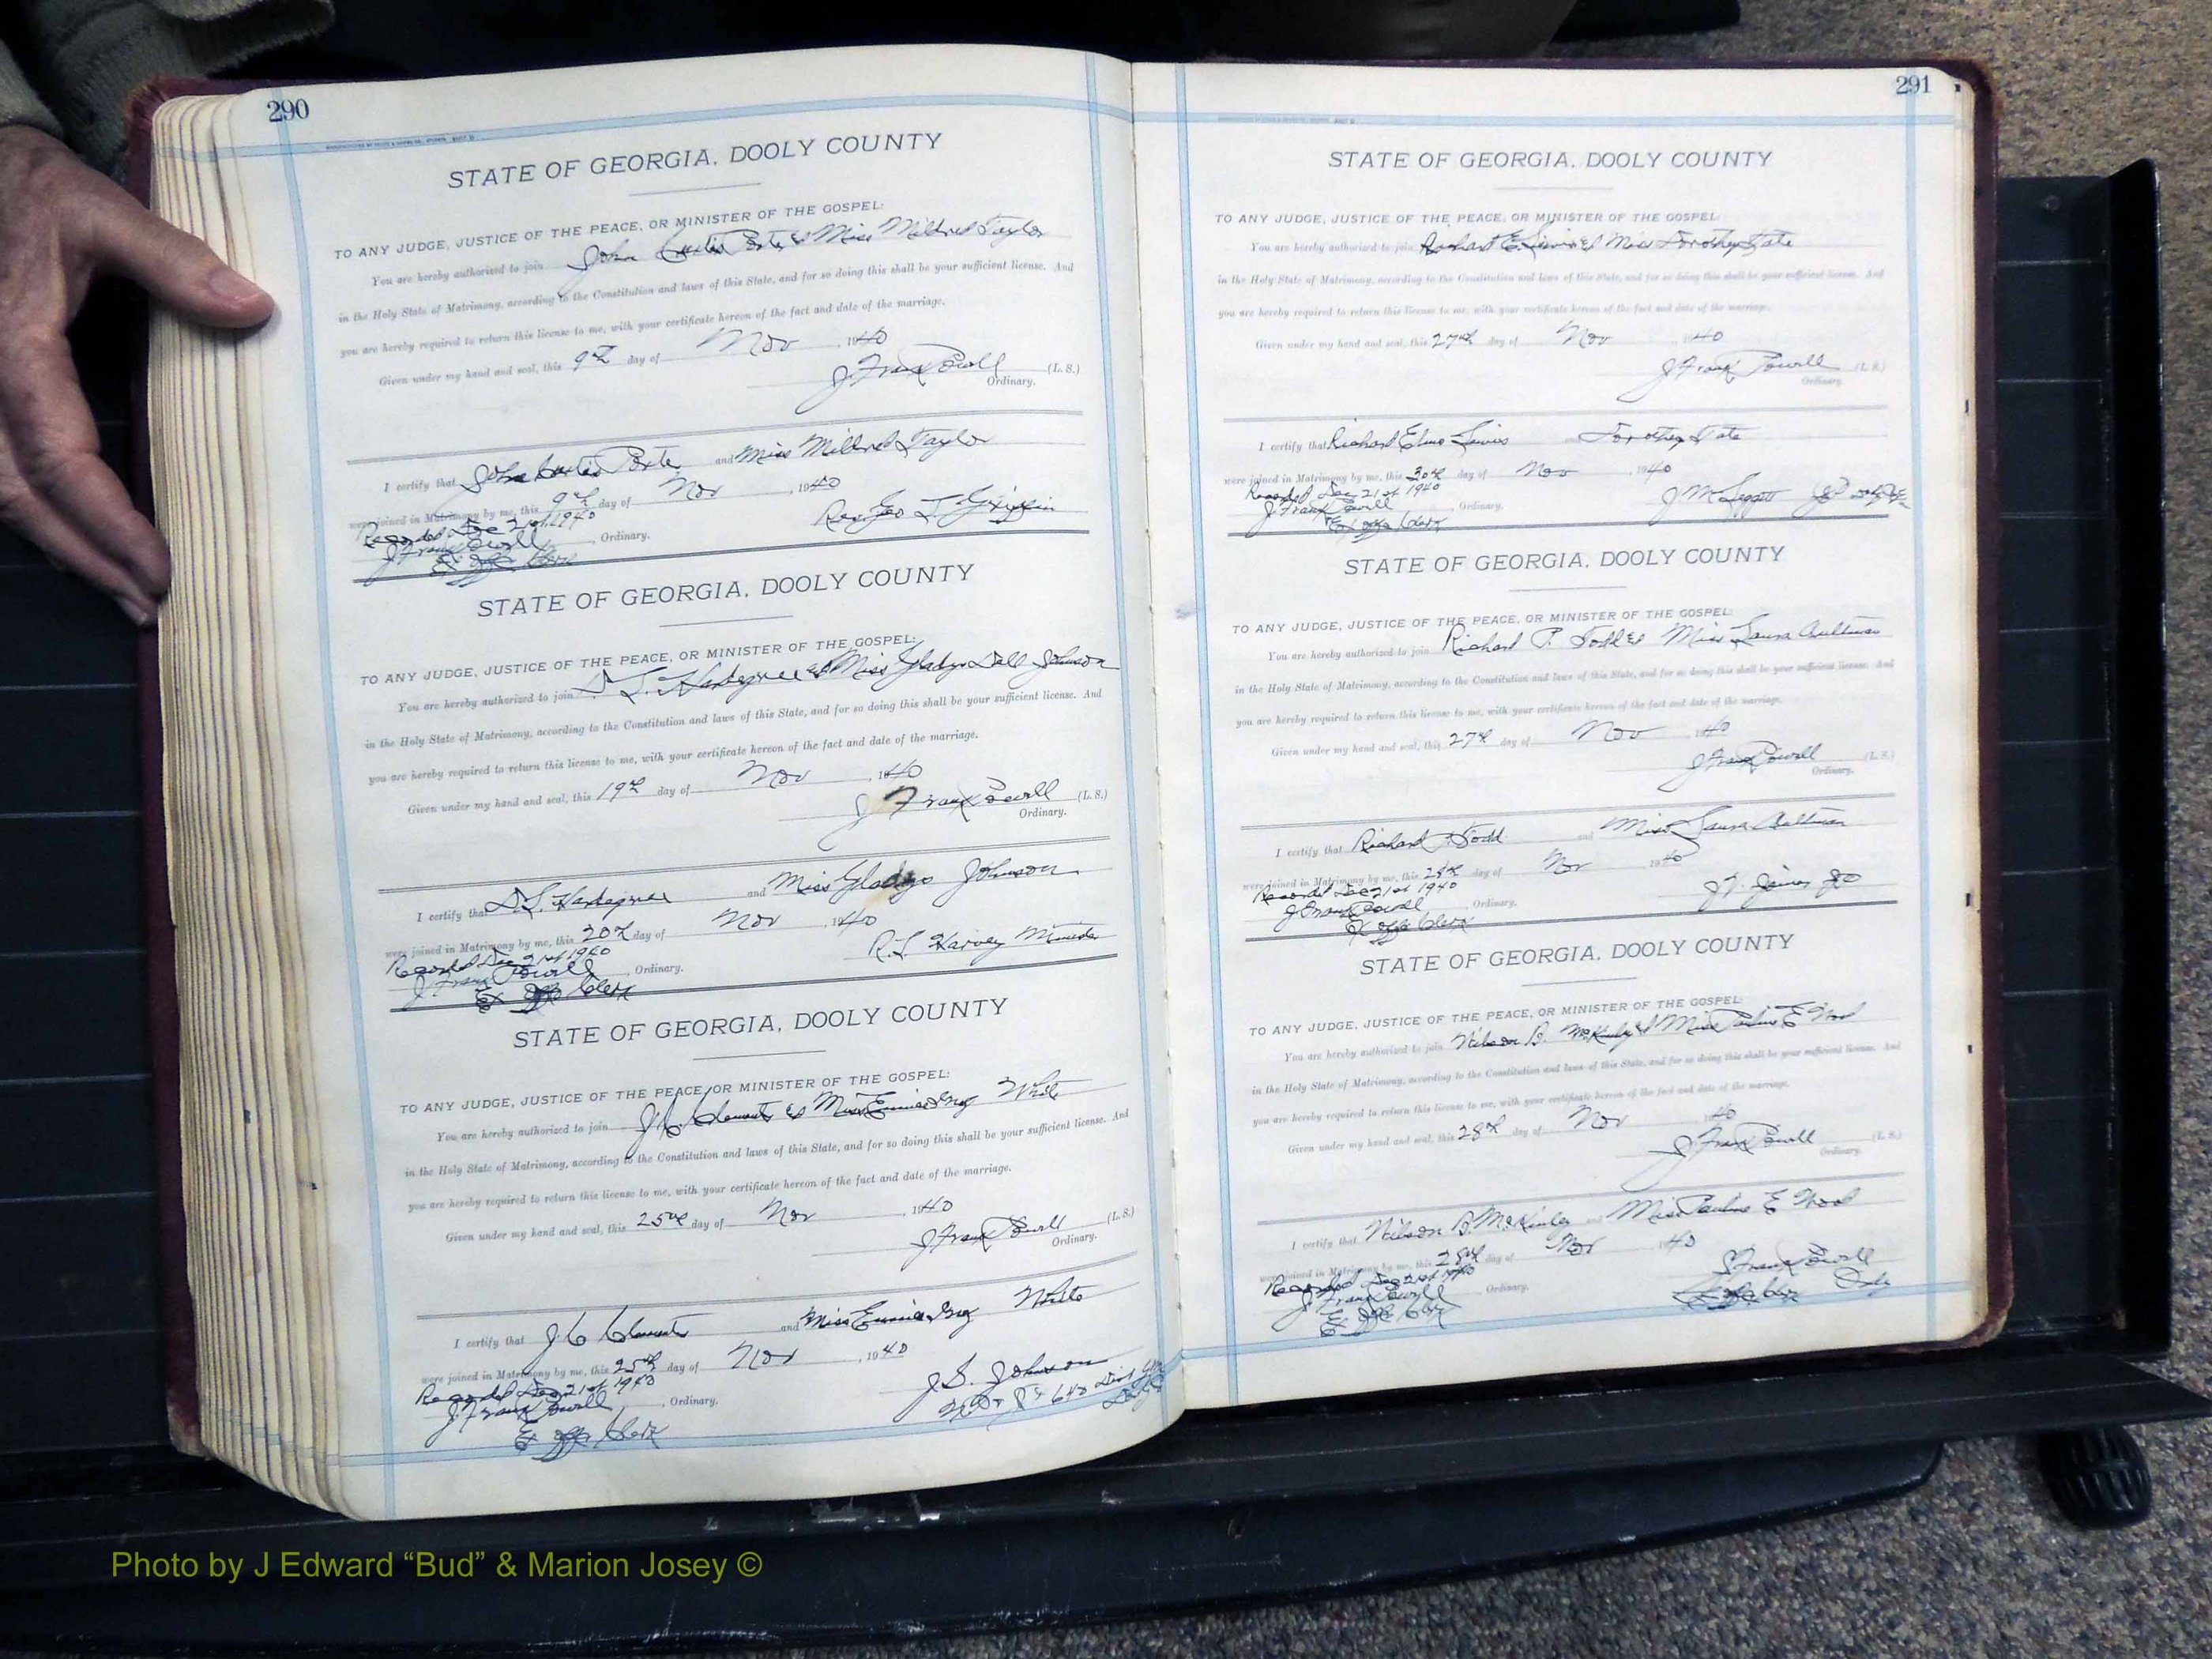 290
STATE OF GEORGIA, DOOLY COUNTY
TO ANY JUDGE, JUSTICE OF THE PEACE, OR MINISTER OF THE GOSPEL:
You are hereby authorized to join John Curtis & Miss Mildred Taylor
in the Holy State of Matrimony, according to the Constitution and laws of this State, and for so doing this shall be your sufficient license. And
you are hereby required to return this license to me, with your certificate hereon of the fact and date of the marriage.
Given under my hand and seal, this 9th day of Nov , 1940
J Frank Powell (L. S.)
Ordinary.
I certify that John Curtis and Miss Mildred Taylor
were joined in Matrimony by me, this 9th day of Nov , 1940
Recorded Dec 21st 1940
Rev Geo T. Griffin
J Frank Powell , Ordinary.
Ex offo Clerk
STATE OF GEORGIA, DOOLY COUNTY
TO ANY JUDGE, JUSTICE OF THE PEACE, OR MINISTER OF THE GOSPEL:
You are hereby authorized to join L. & Miss Gladys Dell Johnson
in the Holy State of Matrimony, according to the Constitution and laws of this State, and for so doing this shall be your sufficient license. And
you are hereby required to return this license to me, with your certificate hereon of the fact and date of the marriage.
Given under my hand and seal, this 19th day of Nov , 1940
J Frank Powell (L. S.)
Ordinary.
I certify that L. and Miss Gladys Johnson
were joined in Matrimony by me, this 20th day of Nov , 1940
Recorded Dec 21st 1940
R. L. Harvey Minister
J Frank Powell , Ordinary.
Ex offo Clerk
STATE OF GEORGIA, DOOLY COUNTY
TO ANY JUDGE, JUSTICE OF THE PEACE, OR MINISTER OF THE GOSPEL:
You are hereby authorized to join J C Clements & Miss White
in the Holy State of Matrimony, according to the Constitution and laws of this State, and for so doing this shall be your sufficient license. And
you are hereby required to return this license to me, with your certificate hereon of the fact and date of the marriage.
Given under my hand and seal, this 25th day of Nov , 1940
J Frank Powell (L. S.)
Ordinary.
I certify that J C Clements and Miss White
were joined in Matrimony by me, this 25th day of Nov , 1940
Recorded Dec 21st 1940
J. S. Johnson
J. Frank Powell , Ordinary.
640 Dist
Ex offo Clerk
291
STATE OF GEORGIA, DOOLY COUNTY
TO ANY JUDGE, JUSTICE OF THE PEACE, OR MINISTER OF THE GOSPEL:
You are hereby authorized to join Richard E. & Miss Dorothy Tate
in the Holy State of Matrimony, according to the Constitution and laws of this State, and for so doing this shall be your sufficient license. And
you are hereby required to return this license to me, with your certificate hereon of the fact and date of the marriage.
Given under my hand and seal, this 27th day of Nov , 1940
J Frank Powell (L. S.)
Ordinary.
I certify that Richard and Dorothy Tate
were joined in Matrimony by me, this 30th day of Nov , 1940
Recorded Dec 21st 1940
J M Leggett
J. Frank Powell , Ordinary.
Ex offo Clerk
STATE OF GEORGIA, DOOLY COUNTY
TO ANY JUDGE, JUSTICE OF THE PEACE, OR MINISTER OF THE GOSPEL:
You are hereby authorized to join Richard P. Todd & Miss Laura Aultman
in the Holy State of Matrimony, according to the Constitution and laws of this State, and for so doing this shall be your sufficient license. And
you are hereby required to return this license to me, with your certificate hereon of the fact and date of the marriage.
Given under my hand and seal, this 27th day of Nov 1940
J Frank Powell (L. S.)
Ordinary.
I certify that Richard P. Todd and Miss Laura Aultman
were joined in Matrimony by me, this 28th day of Nov 1940
Recorded Dec 21st 1940
J Frank Powell , Ordinary.
Ex offo Clerk
STATE OF GEORGIA, DOOLY COUNTY
TO ANY JUDGE, JUSTICE OF THE PEACE, OR MINISTER OF THE GOSPEL:
You are hereby authorized to join Nelson B. McKinley & Miss Pauline E Wood
in the Holy State of Matrimony, according to the Constitution and laws of this State, and for so doing this shall be your sufficient license. And
you are hereby required to return this license to me, with your certificate hereon of the fact and date of the marriage.
Given under my hand and seal, this 28th day of Nov 1940
J Frank Powell (L. S.)
Ordinary.
I certify that Nelson B. McKinley and Miss Pauline E Wood
were joined in Matrimony by me, this 28th day of Nov 1940
Recorded Dec 21st 1940
J Frank Powell
J. Frank Powell , Ordinary.
Ex offo Clerk
Photo by J Edward “Bud” & Marion Josey ©